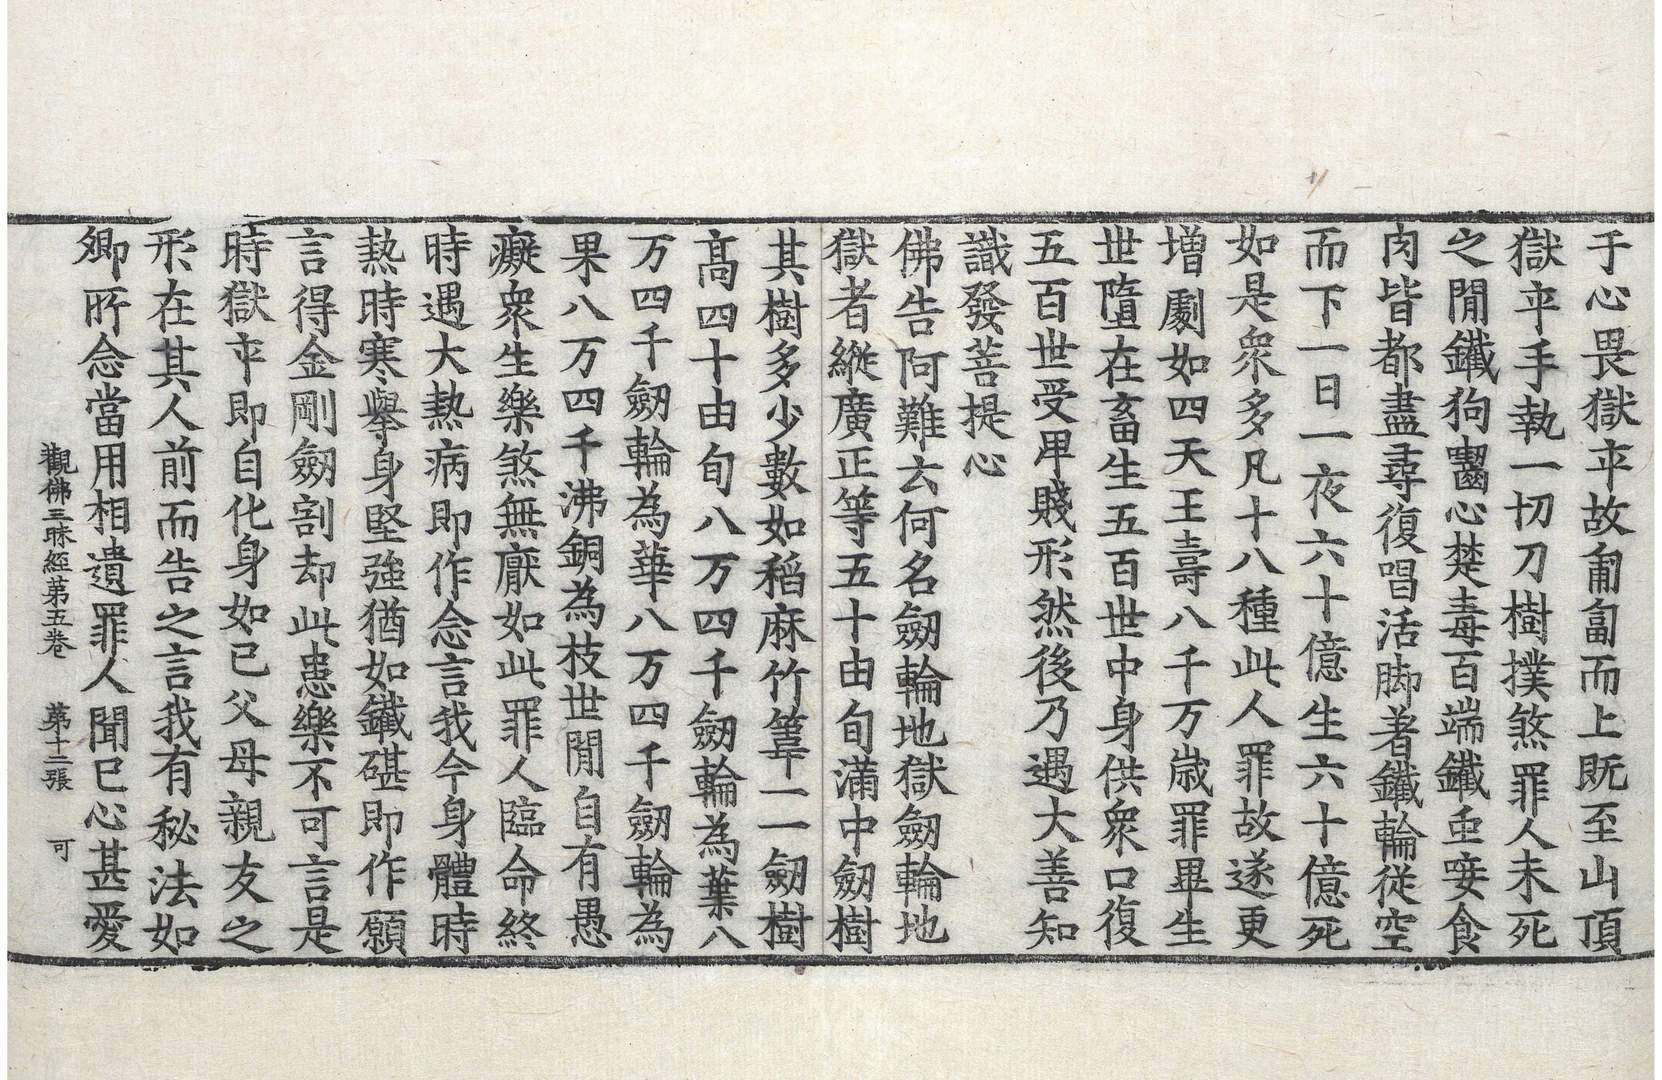 于心畏獄卒故匍匐而上既至山頂
獄卒手執一切刀樹撲煞罪人未死
之閒鐵狗嚙心楚毒百端鐵䖝唼食
肉皆都盡尋復唱活脚著鐵輪従空
而下一日一夜六十億生六十億死
如是衆多凡十八種此人罪故遂更
増劇如四天王壽八千万歳罪畢生
世墮在畜生五百世中身供衆口復
五百世受卑賤形然後乃遇大善知
識發菩提心
佛告阿難云何名劒輪地獄劒輪地
獄者縱廣正等五十由旬滿中劒樹
其樹多少數如稻麻竹葦一一劒樹
髙四十由旬八万四千劒輪為葉八
万四千劒輪為華八万四千劒輪為
果八万四千沸銅為枝世閒自有愚
癡衆生樂煞無厭如此罪人臨命終
時遇大熱病即作念言我今身體時
熱時寒舉身堅強猶如鐵碪即作願
言得金剛劒割却此患樂不可言是
時獄卒即自化身如已父母親友之
形在其人前而告之言我有秘法如
卿所念當用相遺罪人聞已心甚愛
觀佛三昧經第五巻　第十二張　可